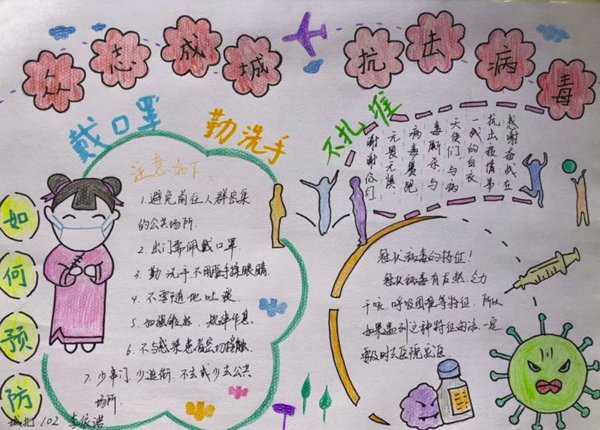 众志成城 抗击病毒
戴口罩
勤洗手
不扎堆
如何预防
注意如下:
1.避免前往人群密集
的公共场所.
2.出门需佩戴口罩.
3.勤洗手不用脏手揉眼睛.
4.不要随地吐痰
5.加强锻炼,规律作息.
6.不与感染患者密切接触.
7.少串门,少逛街,不去或少去公共
场所
感谢奋战在
抗击疫情第
一线的白衣
天使们,与病
毒
无畏无惧
谢谢你们
冠状病毒的特征!
冠状病毒有发热、乏力
干咳、呼吸困难等特征,所以
如果遇到这种特征的话一定
要及时去医院就医
102